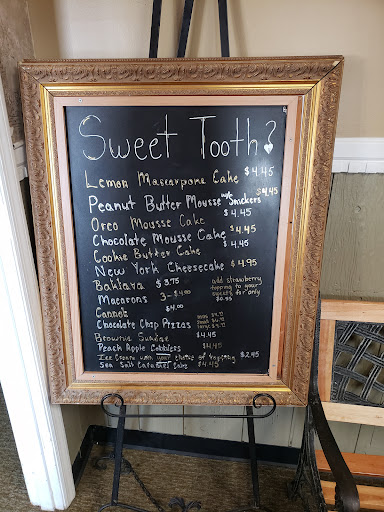 Sweet Tooth?
Lemon Mascarpone Cake $4.45
Peanut Butter Mousse w/ Snickers $4.45
Oreo Mousse Cake $4.45
Chocolate Mousse Cake $4.45
Cookie Butter Cake $4.45
New York Cheesecake $4.95
Baklava $3.75
add strawberry
topping to your
for only
$0.95
Macarons 3-$4.00
Cannoli $4.00
Chocolate Chip Pizzas
Brownie Sundae $4.45
Peach Apple Cobblers $4.45
Ice Cream with your choice of topping $2.45
Sea Salt Caramel Cake $4.45